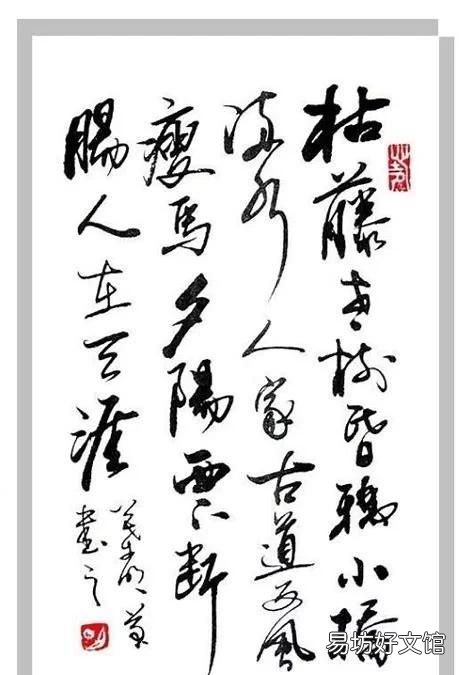 枯藤老樹昏鴉小橋
流水人家古道西風
瘦馬夕陽西下断
腸人在天涯
書之
易坊好文馆